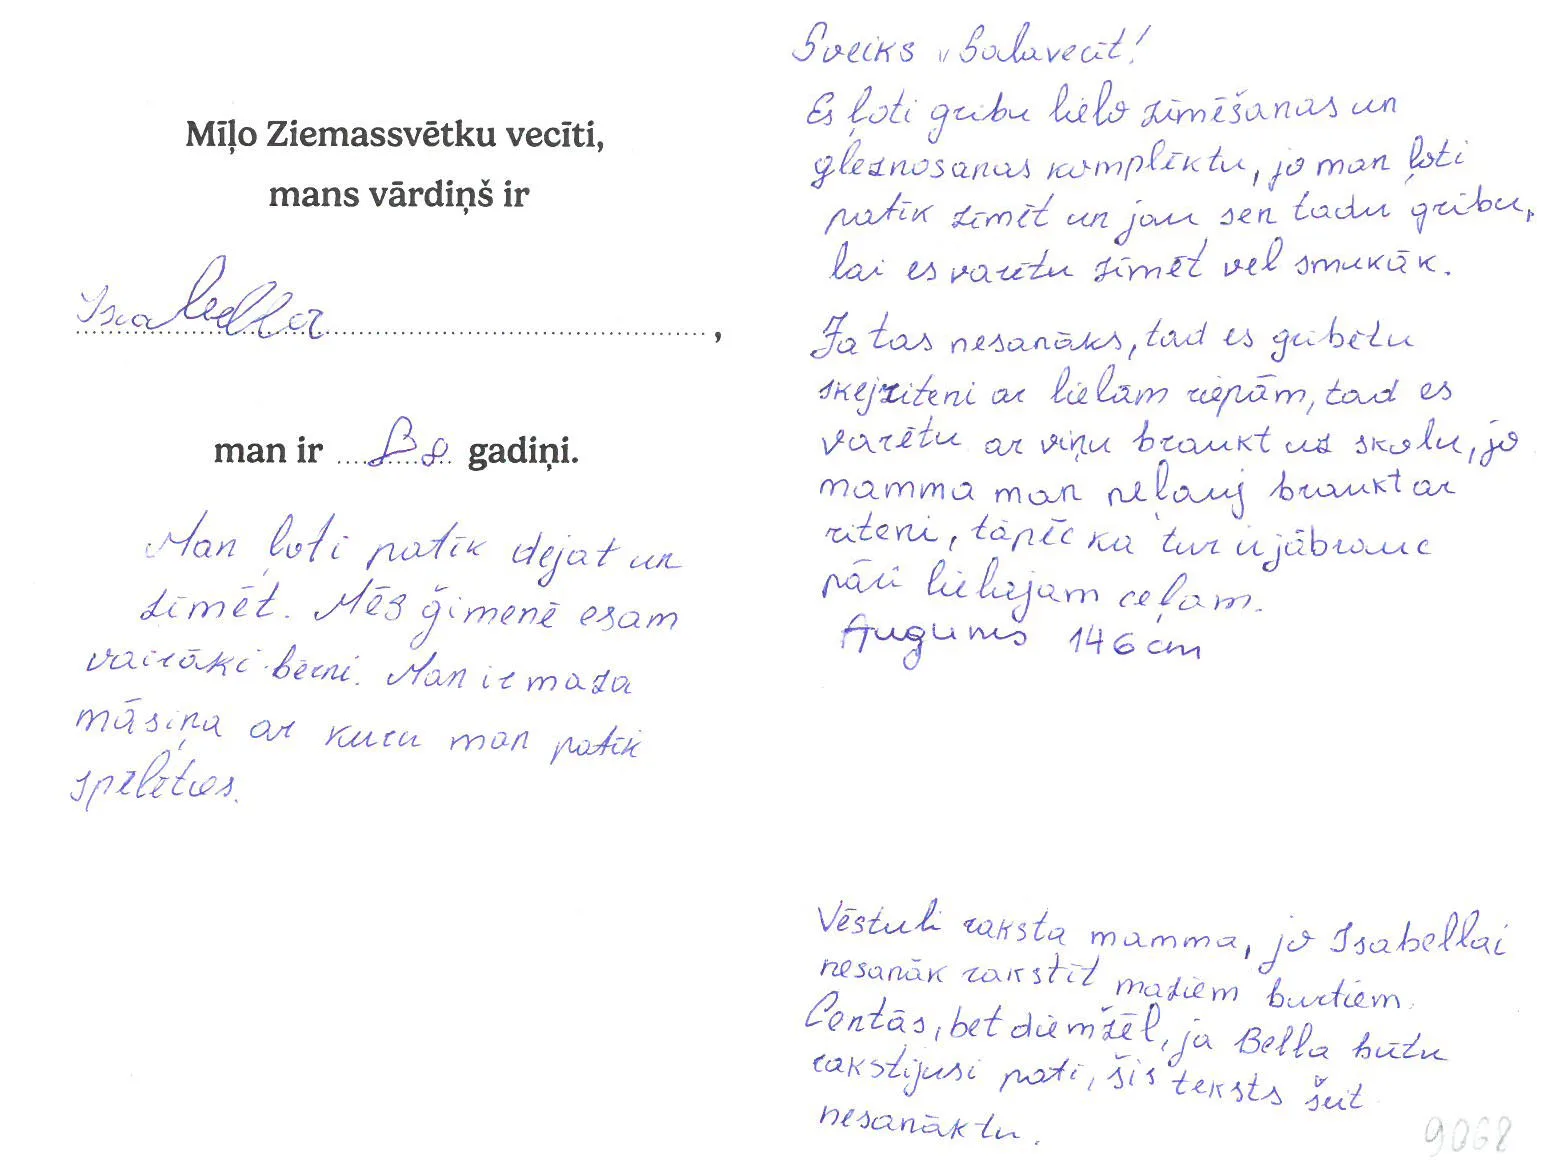 Mīļo Ziemassvētku vecīti,
mans vārdiņš ir
Isabella ,
man ir 8 gadiņi.
Man ļoti patīk dejat un
zīmēt. Mēs ģimenē esam
vairāki bērni. Man ir maza
māsiņa ar kuru man patīk
spēlēties.
Sveiks Salavecīt!
Es ļoti gribu lielo zīmēšanas un
gleznosanas komplēktu, jo man ļoti
patīk zīmēt un jau sen tadu gribu,
lai es varētu zīmēt vel smukāk.
Ja tas nesanāks, tad es gribētu
skejriteni ar lielām riepām, tad es
varētu ar viņu braukt uz skolu, jo
mamma man neļauj braukt ar
riteni, tāpēc ka tur ir jābrauc
pāri lielajam ceļam.
Augums 146 cm
Vēstuli raksta mamma, jo Isabellai
nesanāk rakstīt maziem burtiem.
Centās, bet diemžēl, ja Bella būtu
rakstijusi pati, šis teksts šeit
nesanāktu.
9068